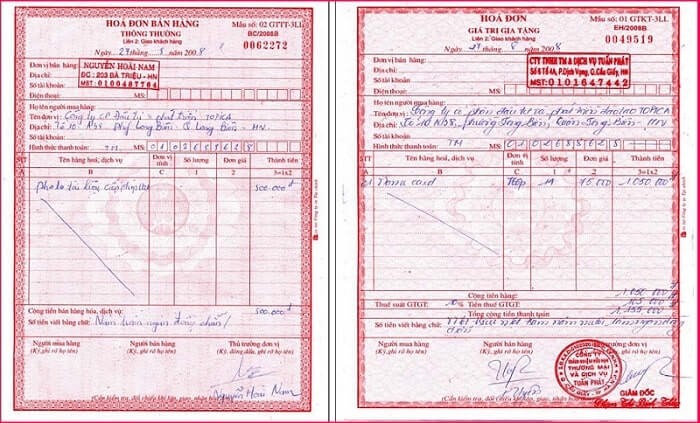 HOÁ ĐƠN BÁN HÀNG
THÔNG THƯỜNG
Liên 2: Giao khách hàng
Mẫu số: 02 GTTT-3LL
BC/2008B
0062272
Ngày 27 tháng 5 năm 2008
Đơn vị bán hàng:
NGUYỄN HOÀI-NAM
Địa chỉ:
ĐC: 203 BÀ TRIỆU - HN
Số tài khoản
MST: 0100487764
Điện thoại: MS:
Họ tên người mua hàng:
Tên đơn vị: Công ty CP Đầu tư & phát triển TOPICA
Địa chỉ: Tổ 10 Long Biên Q Long Biên - HN
Số tài khoản:
Hình thức thanh toán: TM MS: 0102685828
STT
Tên hàng hoá, dịch vụ
Đơn vị tính
Số lượng
Đơn giá
Thành tiền
A B C 1 2 3=1x2
Photo tài liệu 500.000đ
Cộng tiền bán hàng hóa, dịch vụ: 500.000đ
Số tiền viết bằng chữ: Năm trăm ngàn đồng chẵn/
Người mua hàng
(Ký, ghi rõ họ tên)
Người bán hàng
(Ký, ghi rõ họ tên)
Thủ trưởng đơn vị
(Ký, đóng dấu, ghi rõ họ tên)
Nguyễn Hoài Nam
(Cần kiểm tra, đối chiếu khi lập, giao, nhận hoá đơn)
HOÁ ĐƠN
GIÁ TRỊ GIA TĂNG
Liên 2: Giao khách hàng
Mẫu số: 01 GTKT-3LL
EH/2008B
0049519
Ngày 27 tháng 8 năm 2008
Đơn vị bán hàng:
CTY TNHH TM & DỊCH VỤ TUẤN PHÁT
Địa chỉ:
Số 6 Tổ 4A, P.Dịch Vọng, Q.Cầu Giấy, HN
Số tài khoản
MST: 0101647442
Điện thoại: MS:
Họ tên người mua hàng:
Tên đơn vị: Công ty cổ phần đầu tư và phát triển đào tạo TOPICA
Địa chỉ: Tổ 10 Phường Long Biên, Quận Long Biên - HN
Số tài khoản:
Hình thức thanh toán: TM MS: 0102685828
STT
Tên hàng hoá, dịch vụ
Đơn vị tính
Số lượng
Đơn giá
Thành tiền
A B C 1 2 3=1x2
card 14 75.000 1.050.000đ
Cộng tiền hàng: 1.050.000đ
Thuế suất GTGT: 10% Tiền thuế GTGT: 105.000đ
Tổng cộng tiền thanh toán 1.155.000đ
Số tiền viết bằng chữ: Một triệu một trăm năm mươi lăm ngàn đồng
Người mua hàng
(Ký, ghi rõ họ tên)
Người bán hàng
(Ký, ghi rõ họ tên)
CÔNG TY
TRÁCH NHIỆM HỮU HẠN
THƯƠNG MẠI
VÀ DỊCH VỤ
TUẤN PHÁT
GIÁM ĐỐC